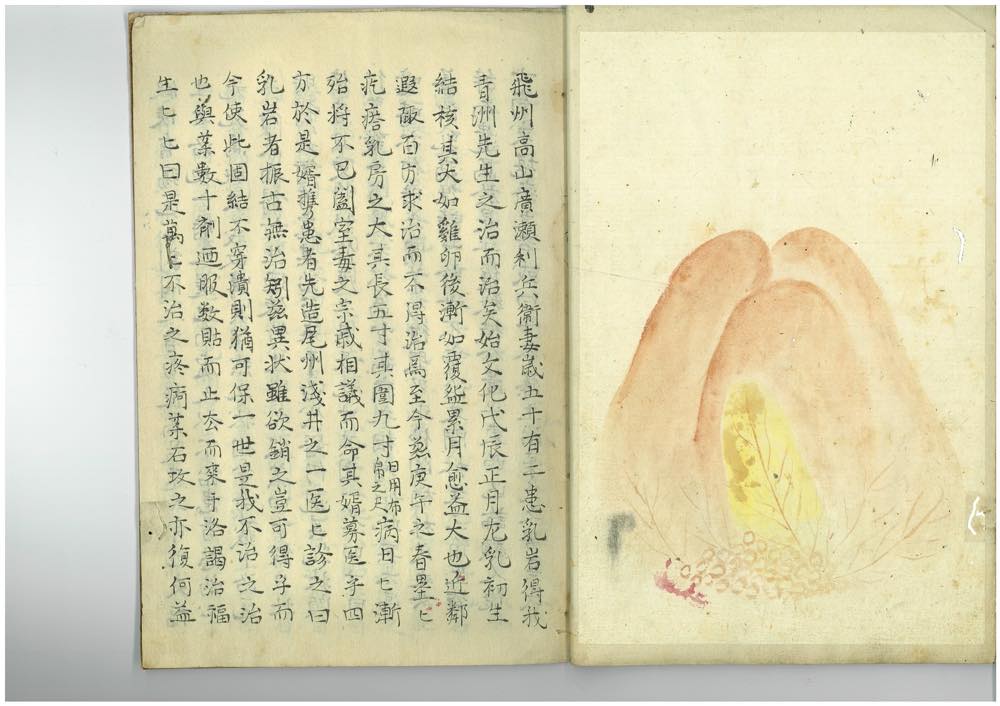 飛州高山廣瀬利兵衞妻歳五十有二患乳岩得我
青洲先生之治而治矣始文化戊辰正月左乳初生
結核其大如雞卵後漸如覆盆累月愈益大也近鄰
遐陬百方求治而不得治焉至今茲庚午之春壘〻
疙瘩乳房之大其長五寸其圍九寸日用布帛之尺病日〻漸
殆將不已闔室毒之宗戚相議而命其婿募医于四
方於是婿携患者先造尾州淺井之一医〻診之曰
乳岩者振古無治矧茲異状雖欲銷之豈可得乎而
今使此固結不穿潰則猶可保一世是我不治之治
也與薬數十剤廼服数貼而止去而来于洛謁治福
生〻〻曰是萬〻不治之疼痾薬石攻之亦復何益